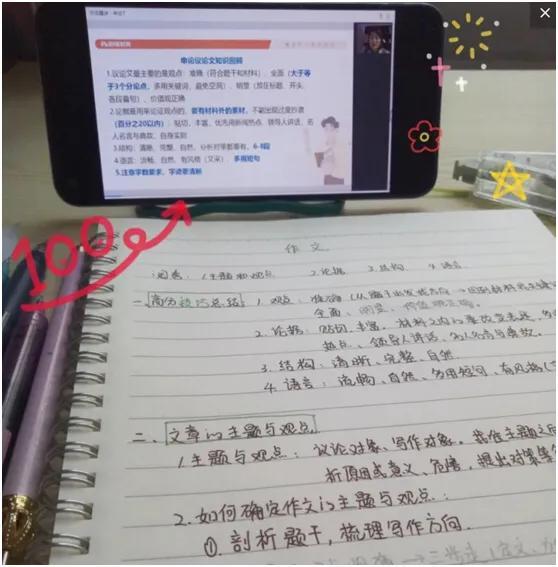 申论议论文知识回顾
1.议论文最主要的是观点：准确（符合题干和材料）、全面（大于等
于3个分论点，多用关键词，避免空洞）、明显（放在标题、开头、
各段首句）、价值观正确
2.论据是用来论证观点的，要有材料外的素材，不能出现过度抄袭
（百分之20以内）；贴切、丰富，优先用新闻热点、领导人讲话、名
人名言与典故、自身实际
3.结构：清晰、完整、自然，
6-8段
4.语言：流畅、自然、有风格（文采）；多用短句
5.注意字数要求，字迹要清晰
100
作文
1.主题和观点 2.论据 3.结构 4.语言
一、高分技巧总结 1.观点：准确
全面、明显、价值观正确。
2.论据：贴切、丰富，
热点、领导人讲话、名人名言与典故。
3.结构：清晰、完整、自然
4.语言：流畅、自然、多用短句、有风格
二、文章的主题与观点
1.主题与观点：议论对象、写作对象。
析原因或意义、危害，提出对策等
2.如何确定作文的主题与观点：
①.剖析题干，梳理写作方向.